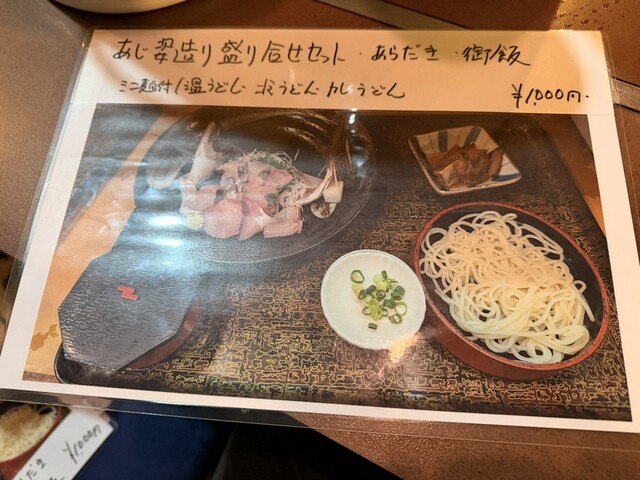 あじ姿造り盛り合せセット・あらだき・御飯
ミニ麺付/温うどん・冷うどん・カレーうどん
¥1,000円.
だき
¥1,000円